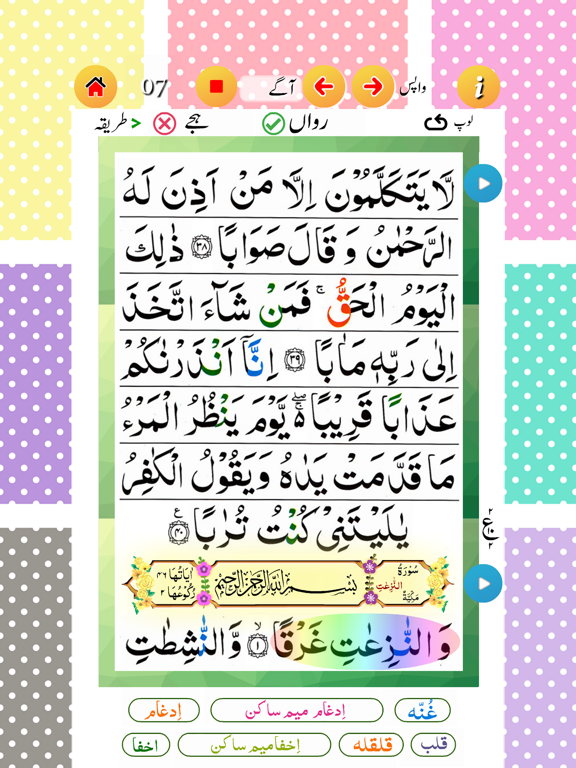 07 آگے واپس i
طریقہ > ہجے رواں لوپ
لَّا يَتَكَلَّمُوْنَ اِلَّا مَنْ اَذِنَ لَهُ
الرَّحْمٰنُ وَ قَالَ صَوَابًا ۝۳۸ ذٰلِكَ
الْيَوْمُ الْحَقُّ ۚ فَمَنْ شَآءَ اتَّخَذَ
اِلٰى رَبِّهٖ مَاٰبًا ۝۳۹ اِنَّآ اَنْذَرْنٰكُمْ
عَذَابًا قَرِيْبًا ۖۚ۬ يَّوْمَ يَنْظُرُ الْمَرْءُ
مَا قَدَّمَتْ يَدٰهُ وَيَقُوْلُ الْكٰفِرُ
يٰلَيْتَنِيْ كُنْتُ تُرٰبًا ۝۴۰ ع
۲ ع ۲
سُوْرَةُ النّٰزِعٰتِ مَكِّيَّةٌ بِسْمِ اللّٰهِ الرَّحْمٰنِ الرَّحِيْمِ اٰيَاتُهَا ۴۶ رُكُوْعُهَا ۲
وَ النّٰزِعٰتِ غَرْقًا ۝۱ وَّ النّٰشِطٰتِ
غُنّه اِدغام میم ساکن اِدغام
قلب قلقله اِخفا میم ساکن اخفا